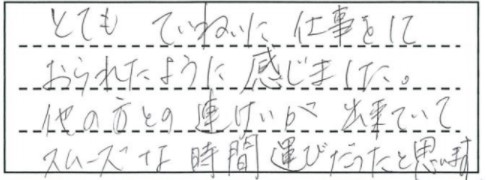 とても ていねいに 仕事をして
おられたように 感じました。
他の方との 連けいが 出来ていて
スムーズな 時間 運びだったと思います